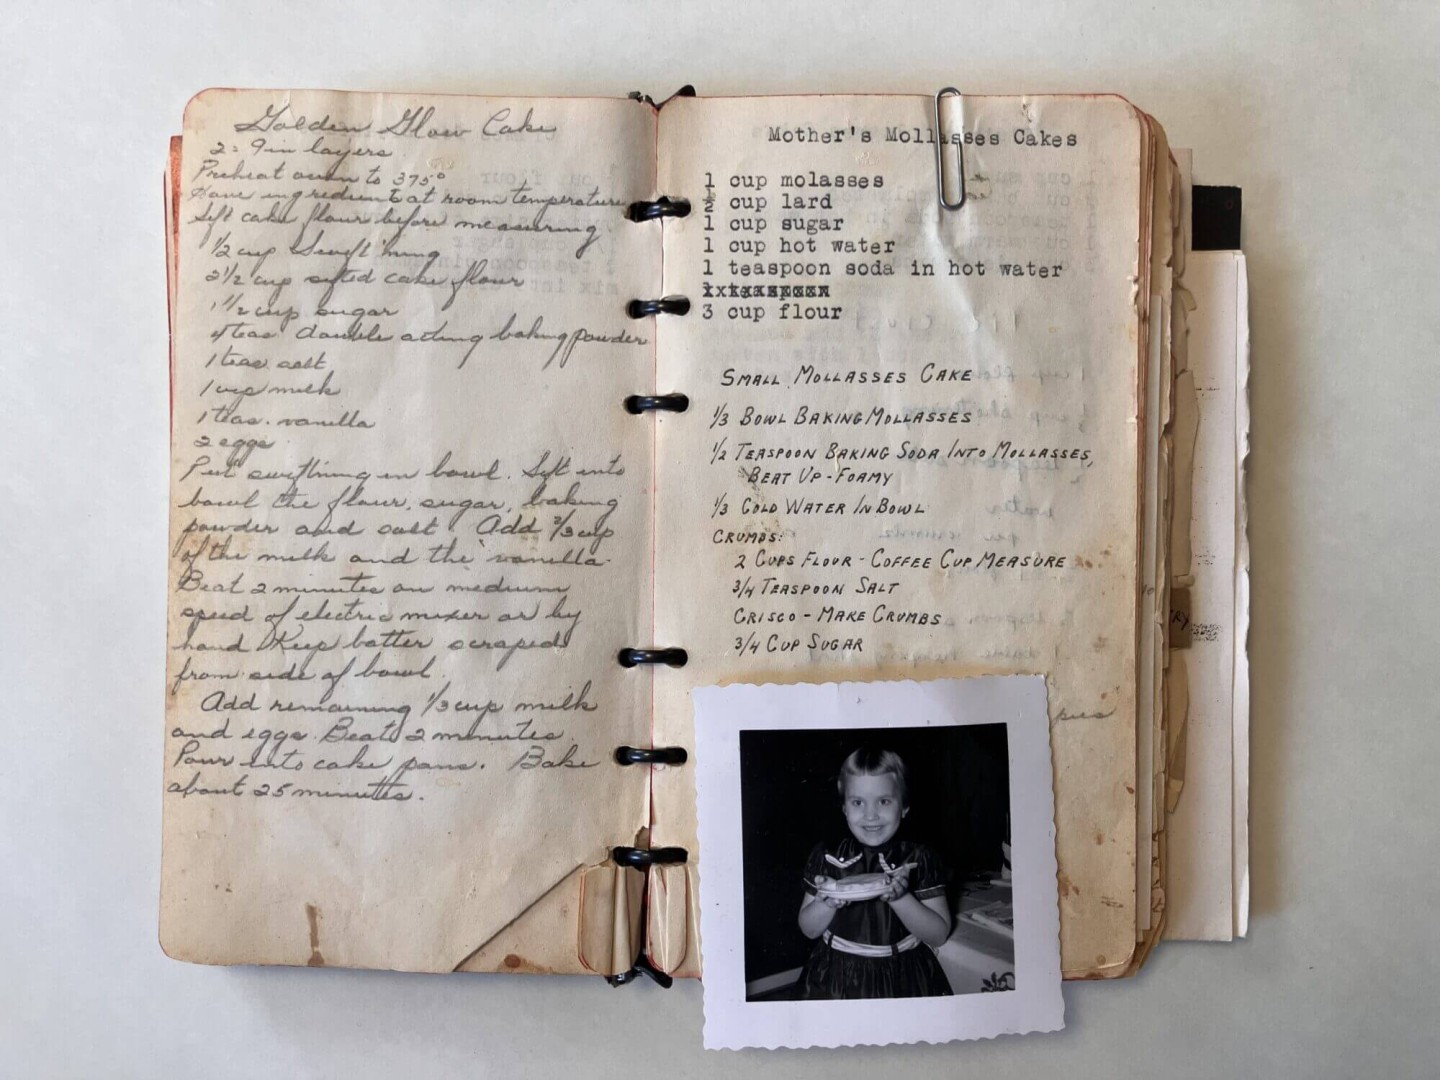 Golden Glow Cake
2 - 9 in layers
Preheat oven to 375°
Have ingredients at room temperature
Sift cake flour before measuring.
1/2 cup Swift'ning
2 1/2 cup sifted cake flour
1 1/2 cup sugar
4 teas double acting baking powder
1 teas salt
1 cup milk
1 teas. vanilla
2 eggs
Put swiftning in bowl. Sift into
bowl the flour, sugar, baking
powder and salt. Add 2/3 cup
of the milk and the vanilla.
Beat 2 minutes on medium
speed of electric mixer or by
hand Keep batter scraped
from side of bowl.
Add remaining 1/3 cup milk
and eggs. Beat 2 minutes.
Pour into cake pans. Bake
about 25 minutes.
Mother's Mollasses Cakes
1 cup molasses
1/2 cup lard
1 cup sugar
1 cup hot water
1 teaspoon soda in hot water
3 cup flour
SMALL MOLLASSES CAKE
1/3 BOWL BAKING MOLLASSES
1/2 TEASPOON BAKING SODA INTO MOLLASSES,
BEAT UP - FOAMY
1/3 COLD WATER IN BOWL
CRUMBS:
2 CUPS FLOUR - COFFEE CUP MEASURE
3/4 TEASPOON SALT
CRISCO - MAKE CRUMBS
3/4 CUP SUGAR
pies